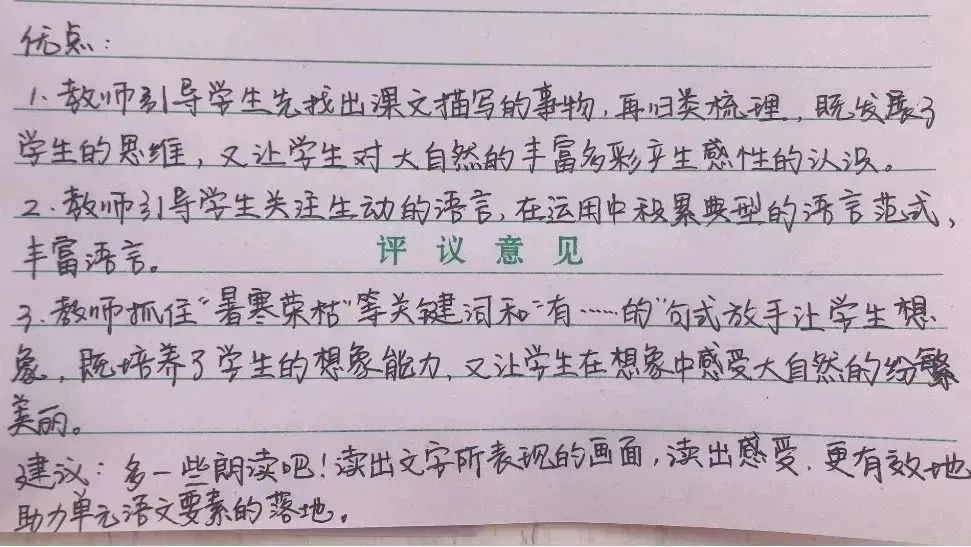 优点：
1. 教师引导学生先找出课文描写的事物，再归类梳理，既发展了
学生的思维，又让学生对大自然的丰富多彩产生感性的认识。
2. 教师引导学生关注生动的语言，在运用中积累典型的语言范式，
丰富语言。
评议意见
3. 教师抓住“暑寒荣枯”等关键词和“有……的”句式放手让学生想
象，既培养了学生的想象能力，又让学生在想象中感受大自然的纷繁
美丽。
建议：多一些朗读吧！读出文字所表现的画面，读出感受，更有效地
助力单元语文要素的落地。